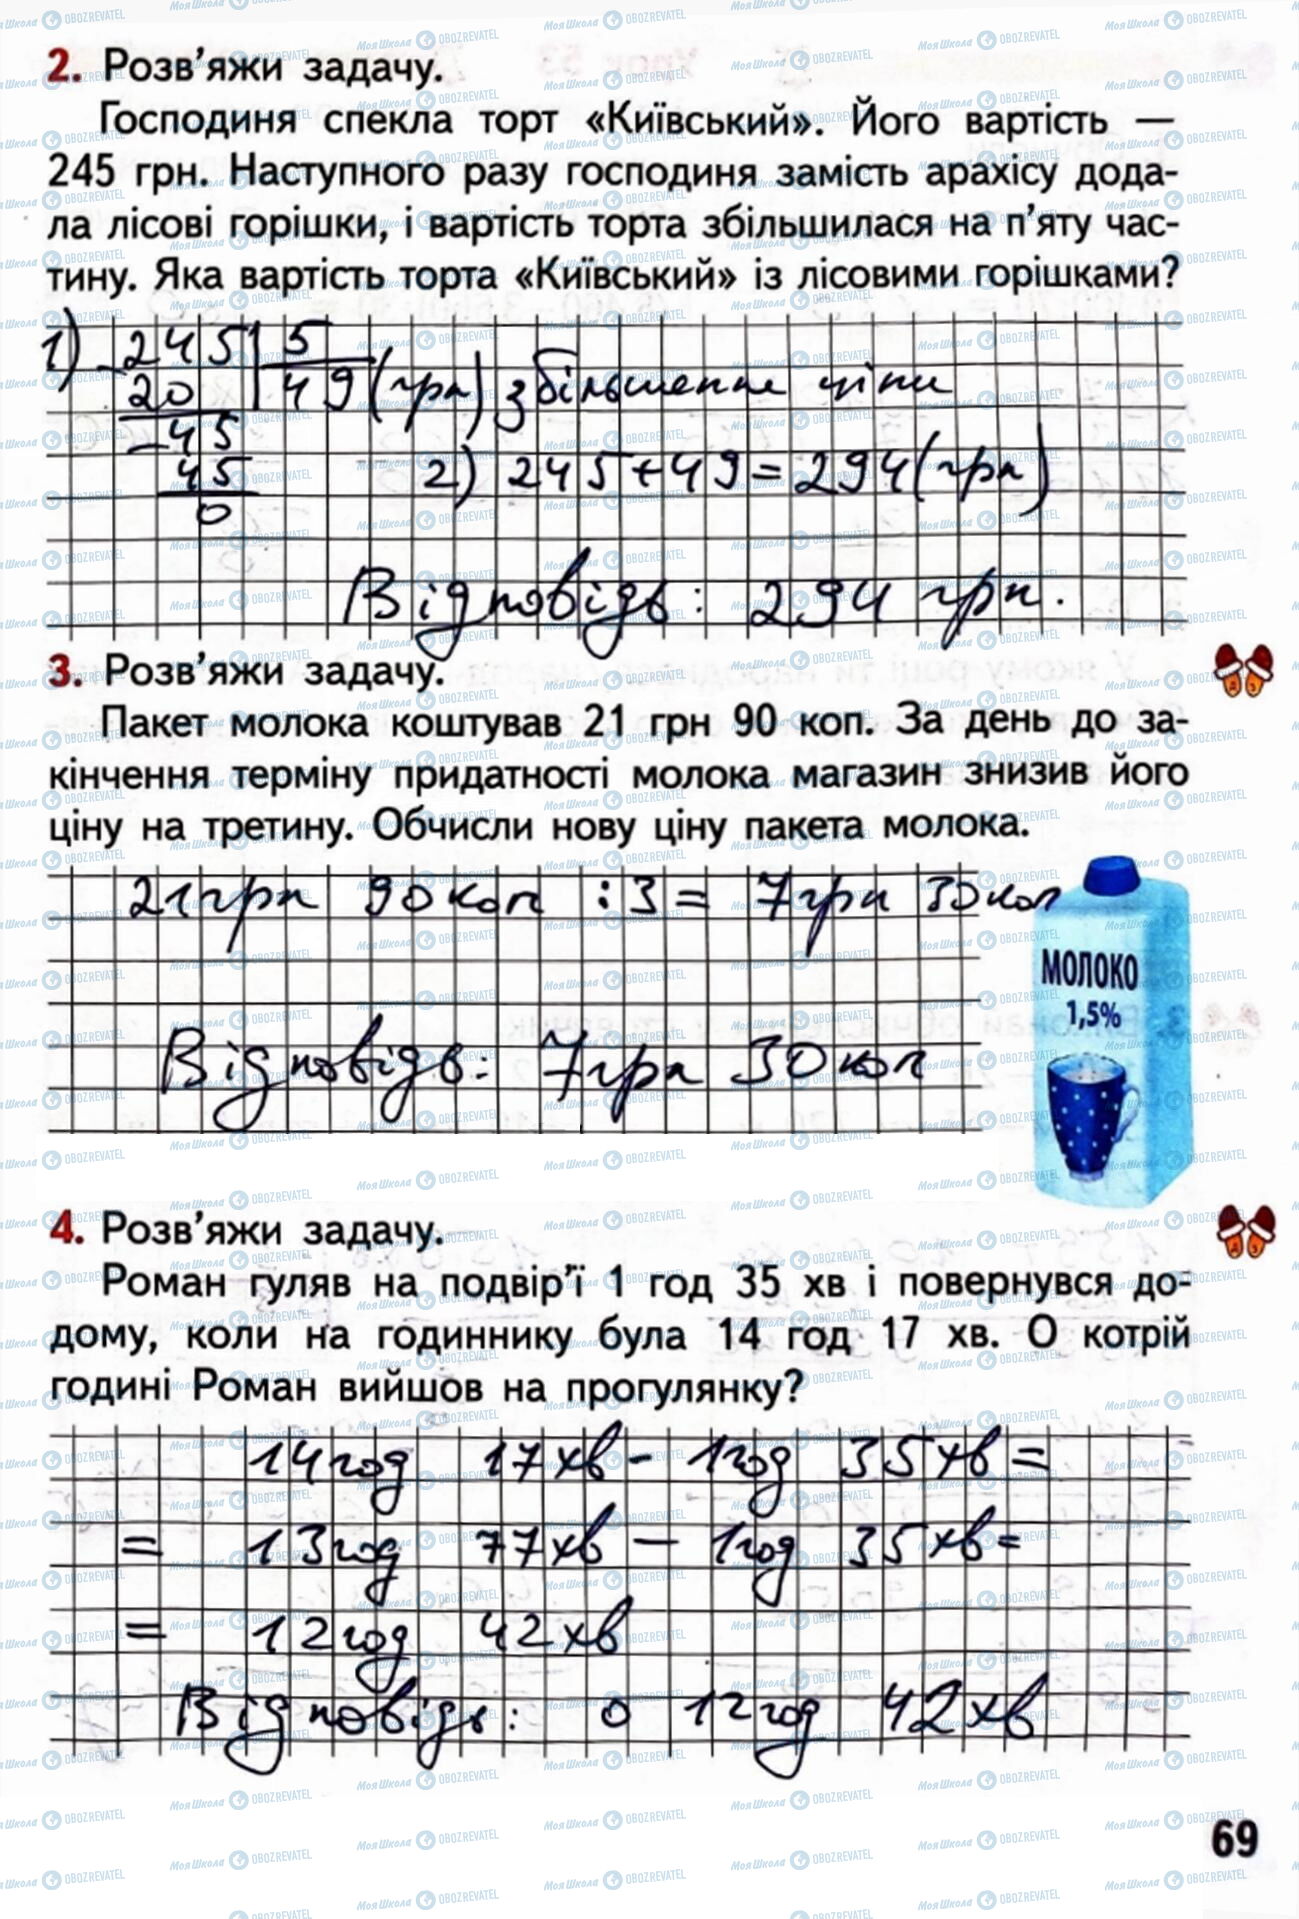 2. Розв'яжи задачу.
Господиня спекла торт «Київський». Його вартість —
245 грн. Наступного разу господиня замість арахісу дода-
ла лісові горішки, і вартість торта збільшилася на п'яту час-
тину. Яка вартість торта «Київський» із лісовими горішками?
1) - 245 | 5
20 | 49 (грн) збільшення ціни
- 45
45 2) 245 + 49 = 294 (грн)
0
Відповідь: 294 грн.
3. Розв'яжи задачу.
Пакет молока коштував 21 грн 90 коп. За день до за-
кінчення терміну придатності молока магазин знизив його
ціну на третину. Обчисли нову ціну пакета молока.
21 грн 90 коп : 3 = 7 грн 30 коп
МОЛОКО
1,5%
Відповідь: 7 грн 30 коп
4. Розв'яжи задачу.
Роман гуляв на подвір'ї 1 год 35 хв і повернувся до-
дому, коли на годиннику була 14 год 17 хв. О котрій
годині Роман вийшов на прогулянку?
14 год 17 хв - 1 год 35 хв =
= 13 год 77 хв - 1 год 35 хв =
= 12 год 42 хв
Відповідь: о 12 год 42 хв
69
МояШкола OBOZREVATEL